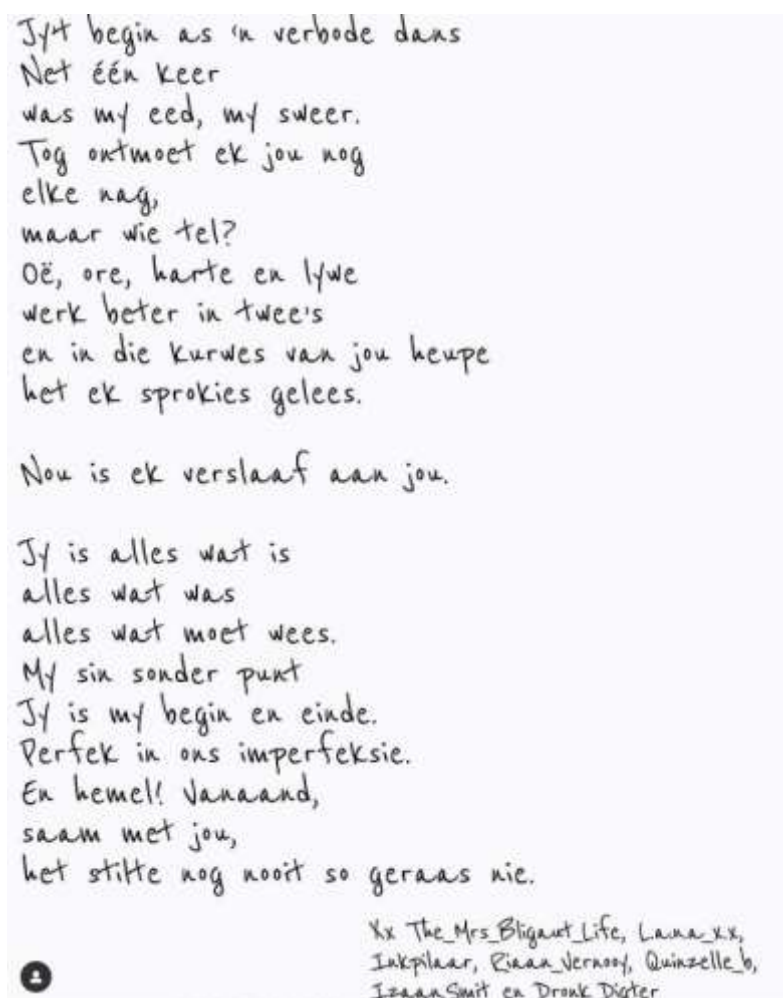 Jy't begin as 'n verbode dans
Net één keer
was my eed, my sweer.
Tog ontmoet ek jou nog
elke nag,
maar wie tel?
Oë, ore, harte en lywe
werk beter in twee's
en in die kurwes van jou heupe
het ek sprokies gelees.
Nou is ek verslaaf aan jou.
Jy is alles wat is
alles wat was
alles wat moet wees.
My sin sonder punt
Jy is my begin en einde.
Perfek in ons imperfeksie.
En hemel! Vanaand,
saam met jou,
het stilte nog nooit so geraas nie.
Xx The_Mrs_Bligaut_Life, Lana_xx,
Inkpilaar, Riaan_Vernooy, Quinzelle_b,
IzaanSmit en Dronk Digter